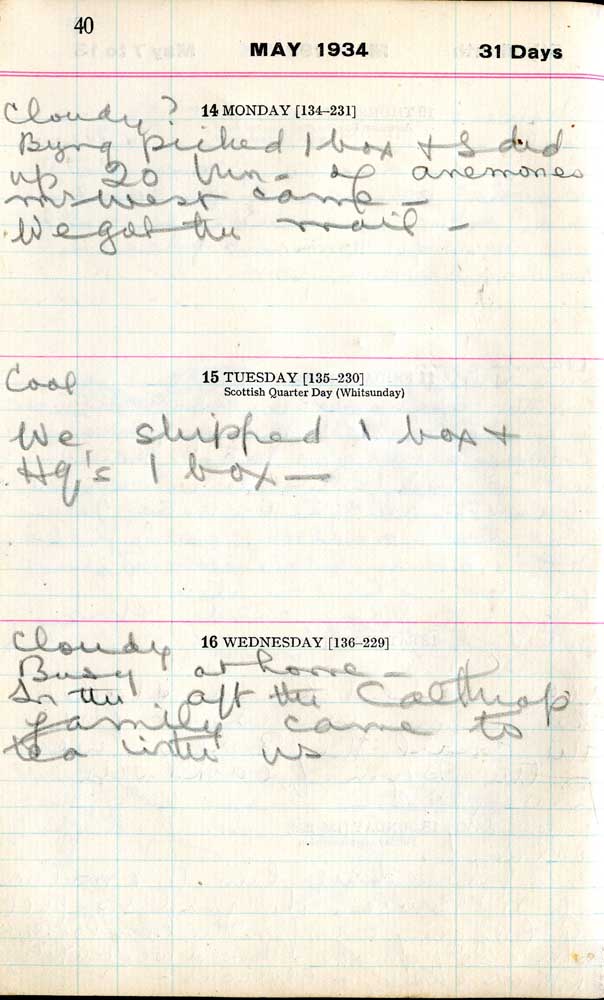 40
MAY 1934
31 Days
Cloudy?
14 MONDAY [134–231]
Byng picked 1 box + I did
up 20 bun- of anemones
Mr West came –
We got the mail –
Cool
15 TUESDAY [135–230]
Scottish Quarter Day (Whitsunday)
We shipped 1 box +
Hq's 1 box —
Cloudy
16 WEDNESDAY [136–229]
Busy at home –
In the aft the Calthrop
family came to
tea with us